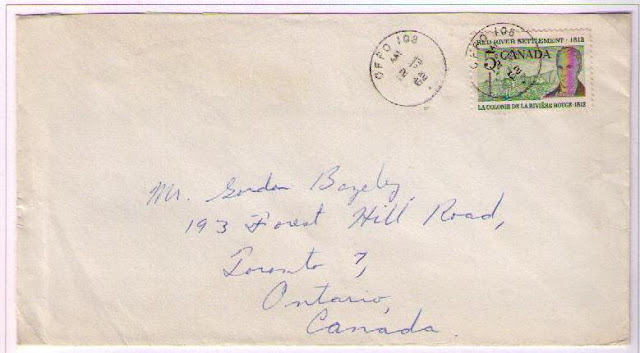 CFPO 108
AM
62
CFPO 108
RED RIVER SETTLEMENT · 1812
5¢ CANADA
LA COLONIE DE LA RIVIÈRE ROUGE · 1812
Mr. Gordon Bazeley,
193 Forest Hill Road,
Toronto 7,
Ontario,
Canada.